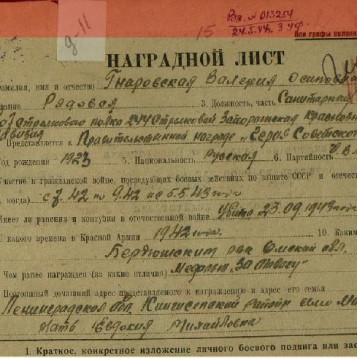 Рег. № 013254
24.5.44. 3 УФ.
д-11
15
Все графы
НАГРАДНОЙ ЛИСТ
амилия, имя и отчество Гнаровская Валерия Осиповна
Рядовая 3. Должность, часть Санитарная
полка 244 Стрелковой Запорожская
дивизия
Представляется к Правительственной награде "Герой Советского
Год рождения 1923 5. Национальность Русская 6. Партийность
Участие в гражданской войне, последующих боевых действиях по защите СССР и отечест
когда) 42 по 9.42 по 5.5.43
Имеет ли ранения и контузии в отечественной войне. Убита 23.09.1943 года
какого времени в Красной Армии 1942 10. Каким
Омской обл.
Чем ранее награжден (за какие отличия) Медаль "За отвагу"
Постоянный домашний адрес представляемого к награждению и адрес его семьи
Ленинградская обл. Кингисепский район село
Мать Евдокия Михайловна
I. Краткое, конкретное изложение личного боевого подвига или зас